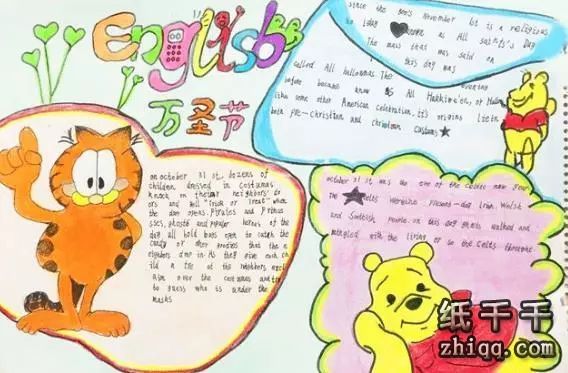 English
万圣节
since the 800s November 1st is a religious
holiday known as All Saints's Day
The mass that was said on
this day was
called All hallowmas The evening
before became know AS All Hakkiwe'en, or Hallo
like some other American celebration, its origins lie in
both pre-christian and christian customs
on october 31 st, dozens of
children dressed in costumes
knock on their neighbors' do
ors and yell "Trick or Treat" when
the door opens. pirates and princess
sses, ghosts and popular heroes of the
day all hold bags open to catch the
candy or other goodies that the n
eighbors drop in. As they give each ch
ild a treat the neighbors
over the costumes and try
to guess who is under the
masks
october 31 st was the eve of the celtic new year
The Celts were the present-day Irish, Welsh
and Scottish people. on this day ghosts walked and
mingled with the living or so the Celts
纸千千
zhiqq.com